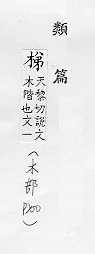 類篇
梯天黎切說文
木階也文一
(木部 P200)